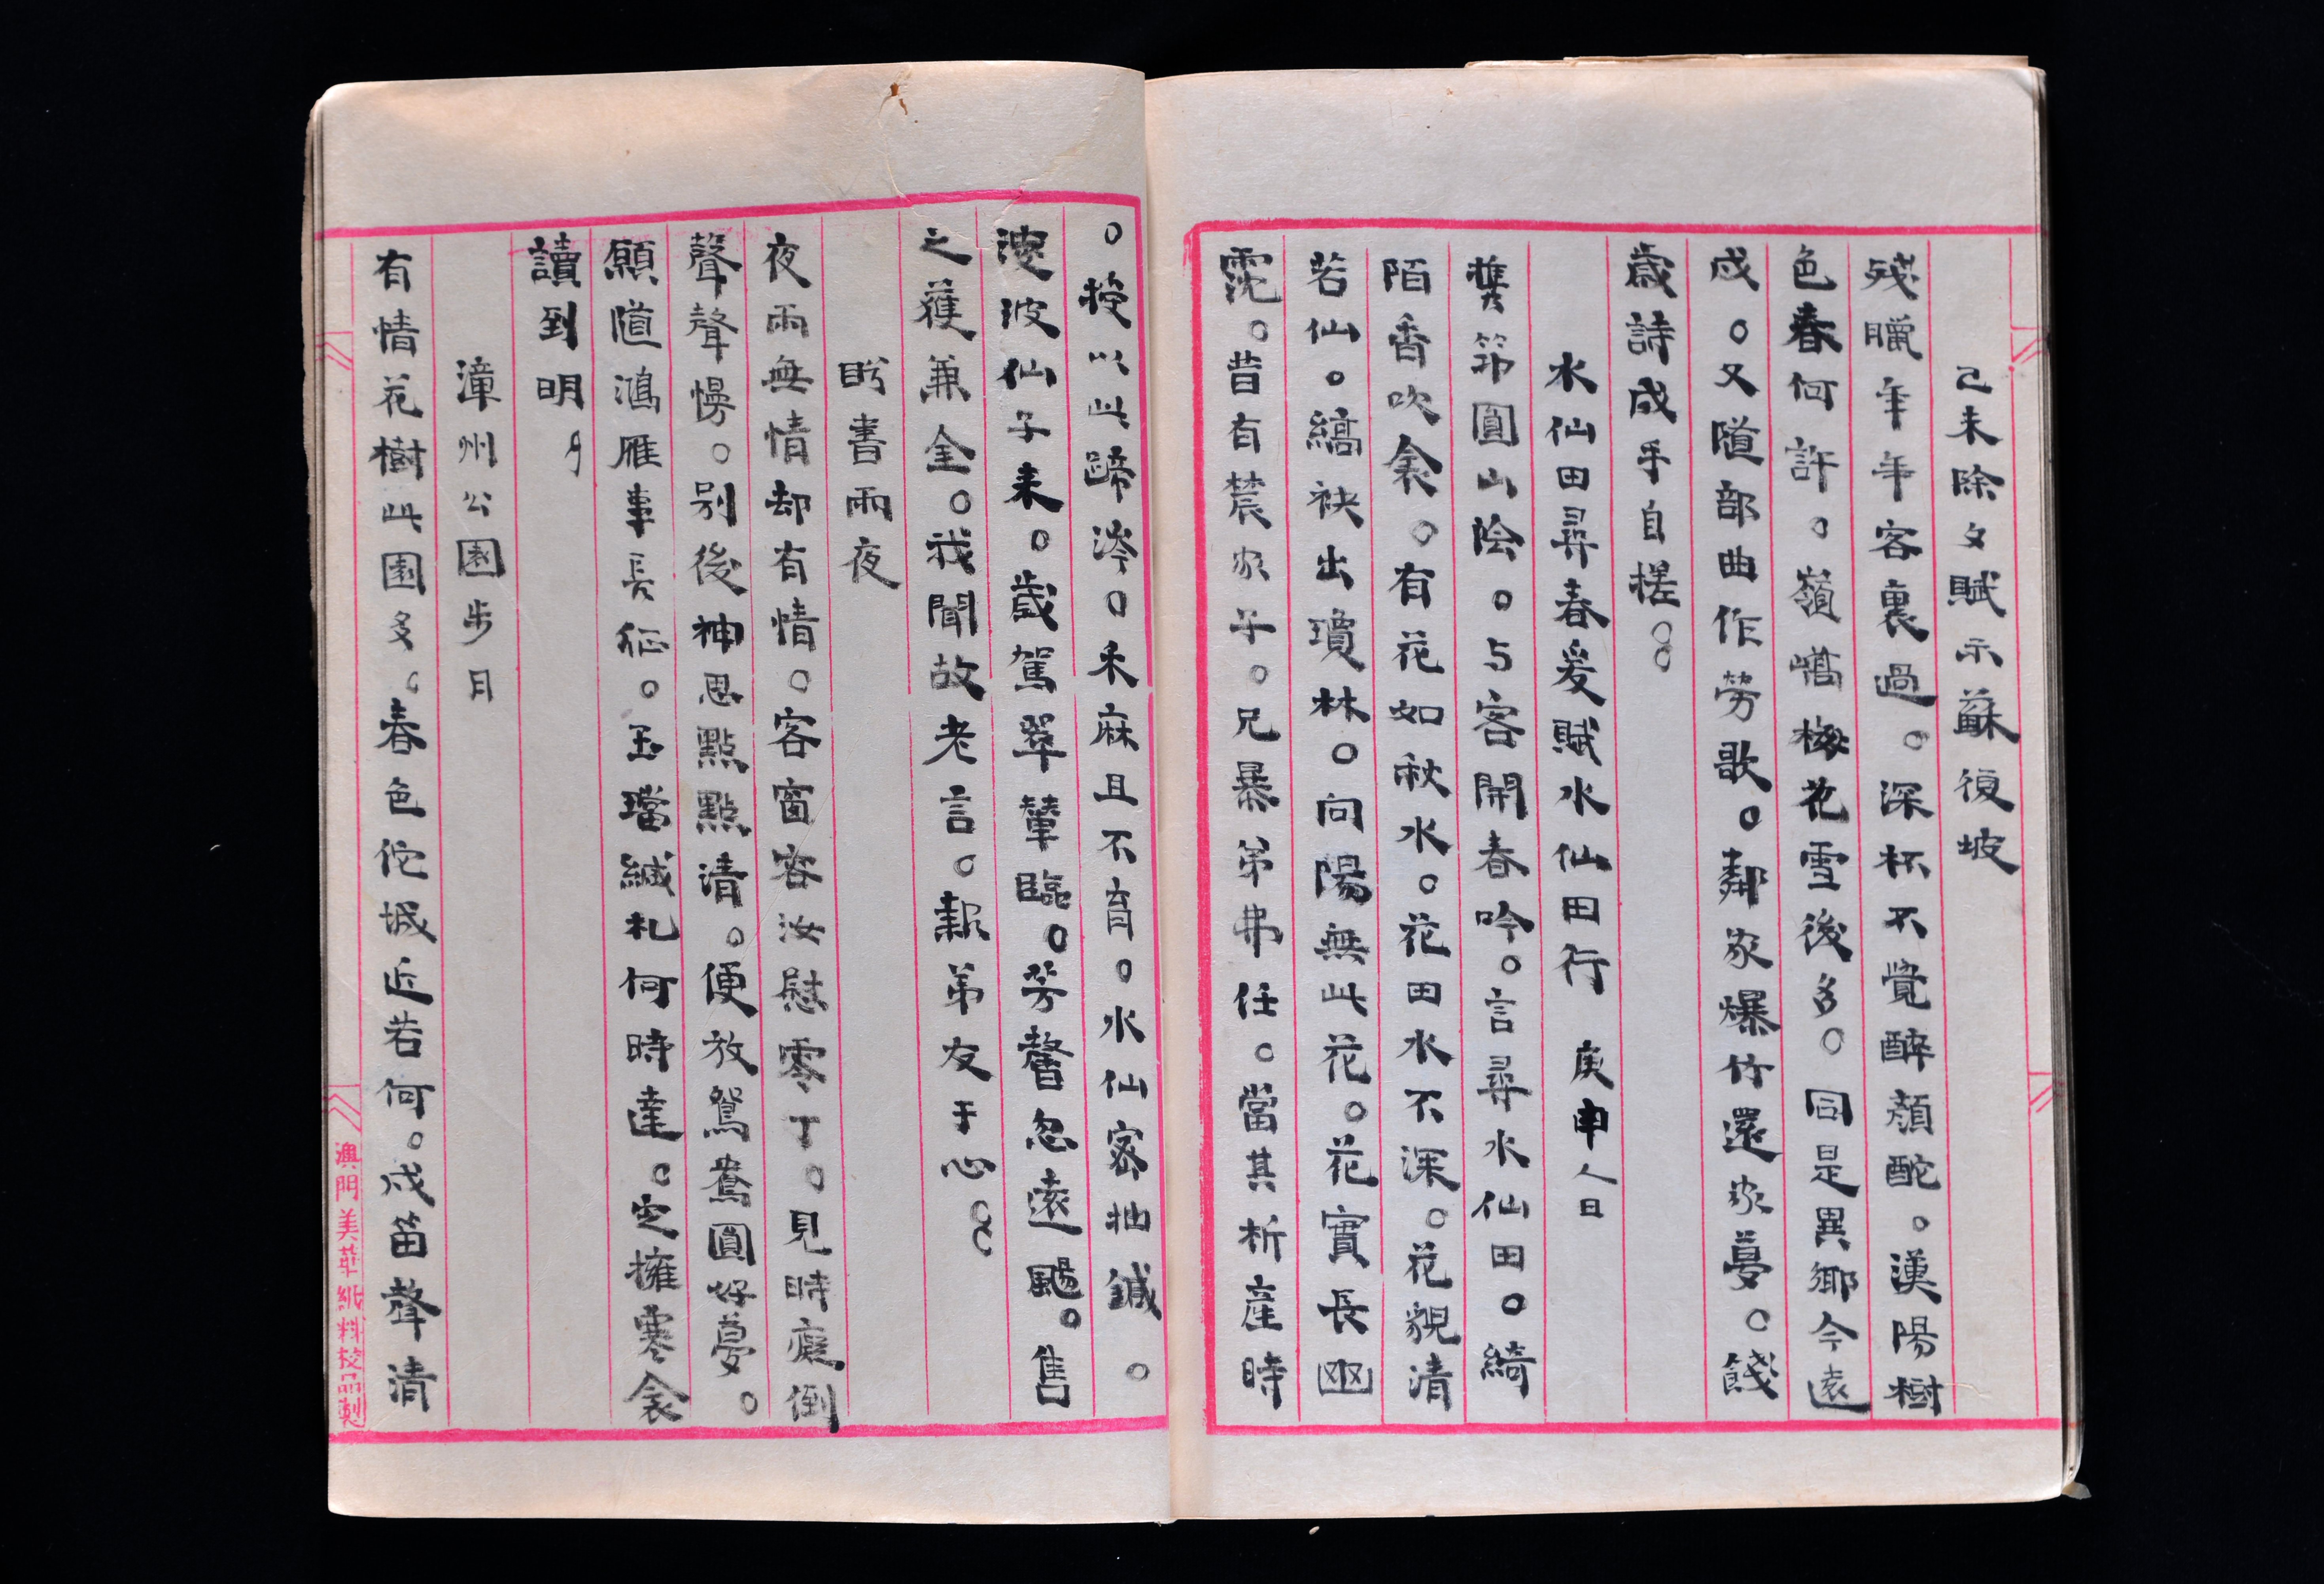 己未除夕賦示蘇復坡
殘臘年年客裏過。深杯不覺醉顏酡。漢陽樹
色春何許。嶺嶠梅花雪後多。同是異鄉今遠
戍。又隨部曲作勞歌。鄰家爆竹還家夢。餞
歲詩成手自搓。
水仙田尋春爰賦水仙田行 庚申人日
攜笻圓山陰。与客開春吟。言尋水仙田。綺
陌香吹衾。有花如秋水。花田水不深。花貌清
若仙。縞袂出瓊林。向陽無此花。花實長幽
霃。昔有農家子。兄暴弟弗任。當其析產時
。授以此蹄涔。禾麻且不育。水仙密抽鍼。
凌波仙子来。歲駕翠輦臨。芳馨忽遠颺。售
之獲兼金。我聞故老言。報弟友于心。
盻書雨夜
夜雨無情却有情。客窗容汝慰零丁。見時癡倒
聲聲慢。別後神思點點清。便放鴛鴦圓好夢。
願隨鴻雁事長征。玉璫緘札何時達。定擁寒衾
讀到明。
漳州公園步月
有情花樹此園多。春色佗城近若何。戍笛聲清
澳門美華紙料校品製